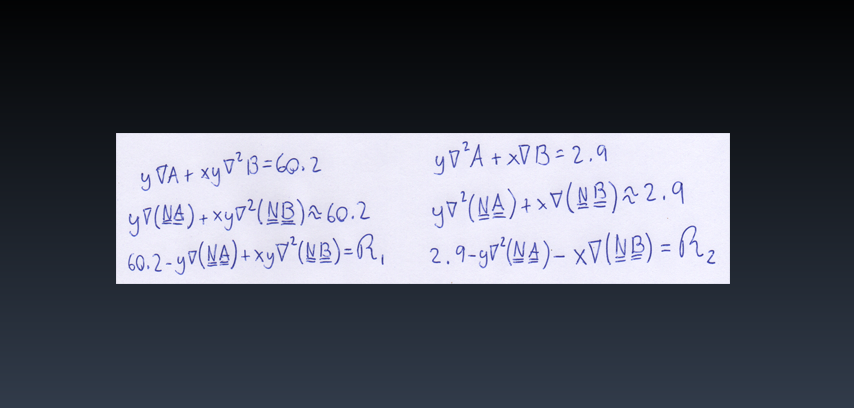 y∇A + xy∇²B = 60.2
y∇(N̳A̳) + xy∇²(N̳B̳) ≈ 60.2
60.2 - y∇(N̳A̳) + xy∇²(N̳B̳) = R₁
y∇²A + x∇B = 2.9
y∇²(N̳A̳) + x∇(N̳B̳) ≈ 2.9
2.9 - y∇²(N̳A̳) - x∇(N̳B̳) = R₂